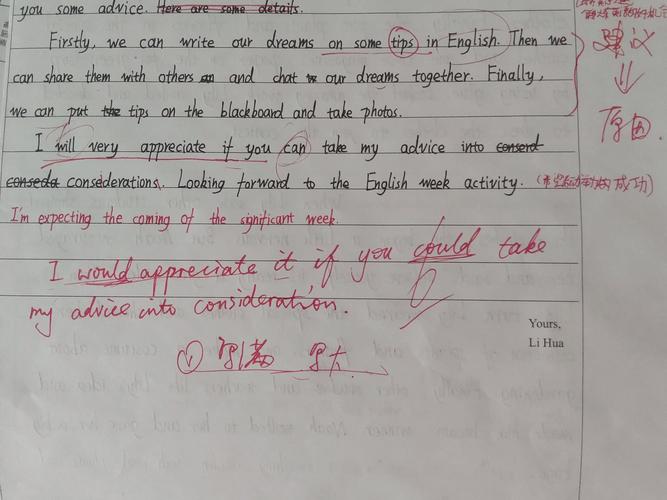 you some advice. Here are some details.
Firstly, we can write our dreams on some tips in English. Then we
can share them with others an and chat to our dreams together. Finally,
we can put the tips on the blackboard and take photos.
I will very appreciate if you can take my advice into conserd
conseda considerations. Looking forward to the English week activity. (希望活动的成功)
I'm expecting the coming of the significant week.
I would appreciate it if you could take
my advice into consideration.
① 写满 写大
Yours,
Li Hua
建议
原因.